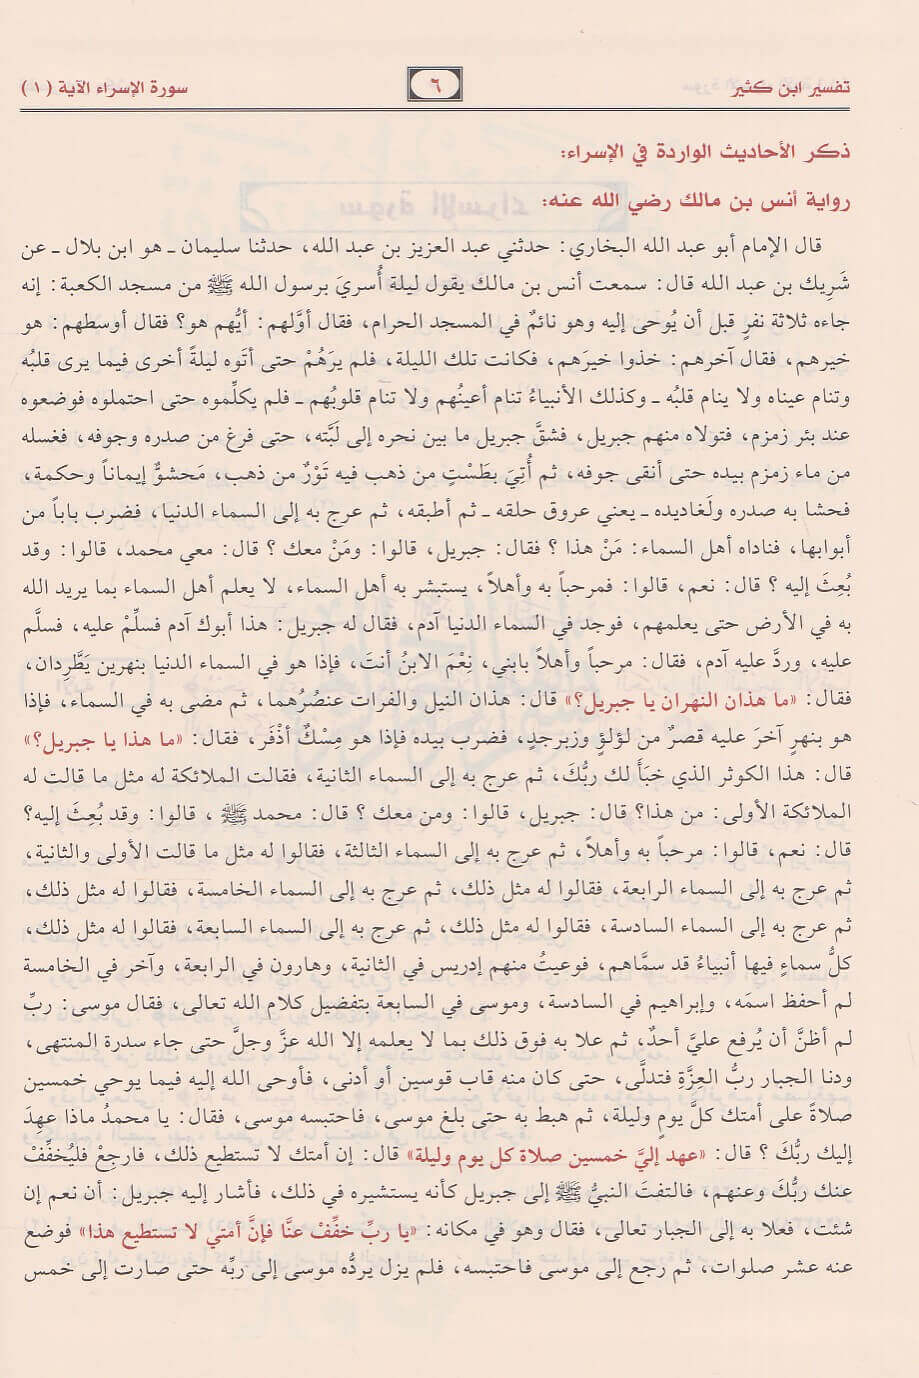 تفسير ابن كثير
٦
سورة الإسراء الآية (١)
ذكر الأحاديث الواردة في الإسراء:
رواية أنس بن مالك رضي الله عنه:
قال الإمام أبو عبد الله البخاري: حدثني عبد العزيز بن عبد الله، حدثنا سليمان ـ هو ابن بلال ـ عن
شَرِيك بن عبد الله قال: سمعت أنس بن مالك يقول ليلة أُسريَ برسول الله ﷺ من مسجد الكعبة: إنه
جاءه ثلاثة نفرٍ قبل أن يُوحى إليه وهو نائمٌ في المسجد الحرام، فقال أوَّلهم: أيُّهم هو؟ فقال أوسطهم: هو
خيرهم، فقال آخرهم: خذوا خيرَهم، فكانت تلك الليلة، فلم يرَهُمْ حتى أتَوه ليلةً أخرى فيما يرى قلبُه
وتنام عيناه ولا ينام قلبُه ـ وكذلك الأنبياءُ تنام أعينُهم ولا تنام قلوبُهم ـ فلم يكلِّموه حتى احتملوه فوضعوه
عند بئر زمزم، فتولاه منهم جبريل، فشقَّ جبريل ما بين نحره إلى لَبَّته، حتى فرغ من صدره وجوفه، فغسله
من ماء زمزم بيده حتى أنقى جوفه، ثم أُتِيَ بطَسْتٍ من ذهب فيه تَوْرٌ من ذهب، مَحشوٌّ إيماناً وحكمة،
فحشا به صدره ولَغاديده ـ يعني عروق حلقه ـ ثم أطبقه، ثم عرج به إلى السماء الدنيا، فضرب باباً من
أبوابها، فناداه أهل السماء: مَنْ هذا ؟ فقال: جبريل، قالوا: ومَنْ معك ؟ قال: معي محمد، قالوا: وقد
بُعِثَ إليه ؟ قال: نعم، قالوا: فمرحباً به وأهلاً، يستبشر به أهل السماء، لا يعلم أهل السماء بما يريد الله
به في الأرض حتى يعلمهم، فوجد في السماء الدنيا آدم، فقال له جبريل: هذا أبوك آدم فسلِّمْ عليه، فسلَّم
عليه، وردَّ عليه آدم، فقال: مرحباً وأهلاً بابني، نِعْمَ الابنُ أنتَ، فإذا هو في السماء الدنيا بنهرين يَطَّرِدان،
فقال: «ما هذان النهران يا جبريل؟» قال: هذان النيل والفرات عنصُرُهما، ثم مضى به في السماء، فإذا
هو بنهرٍ آخرَ عليه قصرٌ من لؤلؤٍ وزبرجدٍ، فضرب بيده فإذا هو مِسْكٌ أذْفَر، فقال: «ما هذا يا جبريل؟»
قال: هذا الكوثر الذي خبَأَ لك ربُّكَ، ثم عرج به إلى السماء الثانية، فقالت الملائكة له مثل ما قالت له
الملائكة الأولى: من هذا؟ قال: جبريل، قالوا: ومن معك ؟ قال: محمد ﷺ ، قالوا: وقد بُعِثَ إليه؟
قال: نعم، قالوا: مرحباً به وأهلاً، ثم عرج به إلى السماء الثالثة، فقالوا له مثل ما قالت الأولى والثانية،
ثم عرج به إلى السماء الرابعة، فقالوا له مثل ذلك، ثم عرج به إلى السماء الخامسة، فقالوا له مثل ذلك،
ثم عرج به إلى السماء السادسة، فقالوا له مثل ذلك، ثم عرج به إلى السماء السابعة، فقالوا له مثل ذلك،
كلُّ سماءٍ فيها أنبياءُ قد سمَّاهم، فوعيتُ منهم إدريس في الثانية، وهارون في الرابعة، وآخر في الخامسة
لم أحفظ اسمَه، وإبراهيم في السادسة، وموسى في السابعة بتفضيل كلام الله تعالى، فقال موسى: ربِّ
لم أظنَّ أن يُرفع عليَّ أحدٌ، ثم علا به فوق ذلك بما لا يعلمه إلا الله عزَّ وجلَّ حتى جاء سدرة المنتهى،
ودنا الجبار ربُّ العِزَّةِ فتدلَّى، حتى كان منه قاب قوسين أو أدنى، فأوحى الله إليه فيما يوحي خمسين
صلاةً على أمتك كلَّ يومٍ وليلة، ثم هبط به حتى بلغ موسى، فاحتبسه موسى، فقال: يا محمدُ ماذا عهِدَ
إليك ربُّكَ ؟ قال: «عهد إليَّ خمسين صلاة كل يوم وليلة» قال: إن أمتك لا تستطيع ذلك، فارجِعْ فليُخفِّفْ
عنك ربُّكَ وعنهم، فالتفتَ النبيُّ ﷺ إلى جبريل كأنه يستشيره في ذلك، فأشار إليه جبريل: أن نعم إن
شئت، فعلا به إلى الجبار تعالى، فقال وهو في مكانه: «يا ربِّ خفِّفْ عنَّا فإنَّ أمتي لا تستطيع هذا» فوضع
عنه عشر صلوات، ثم رجع إلى موسى فاحتبسه، فلم يزل يردُّه موسى إلى ربِّه حتى صارت إلى خمس